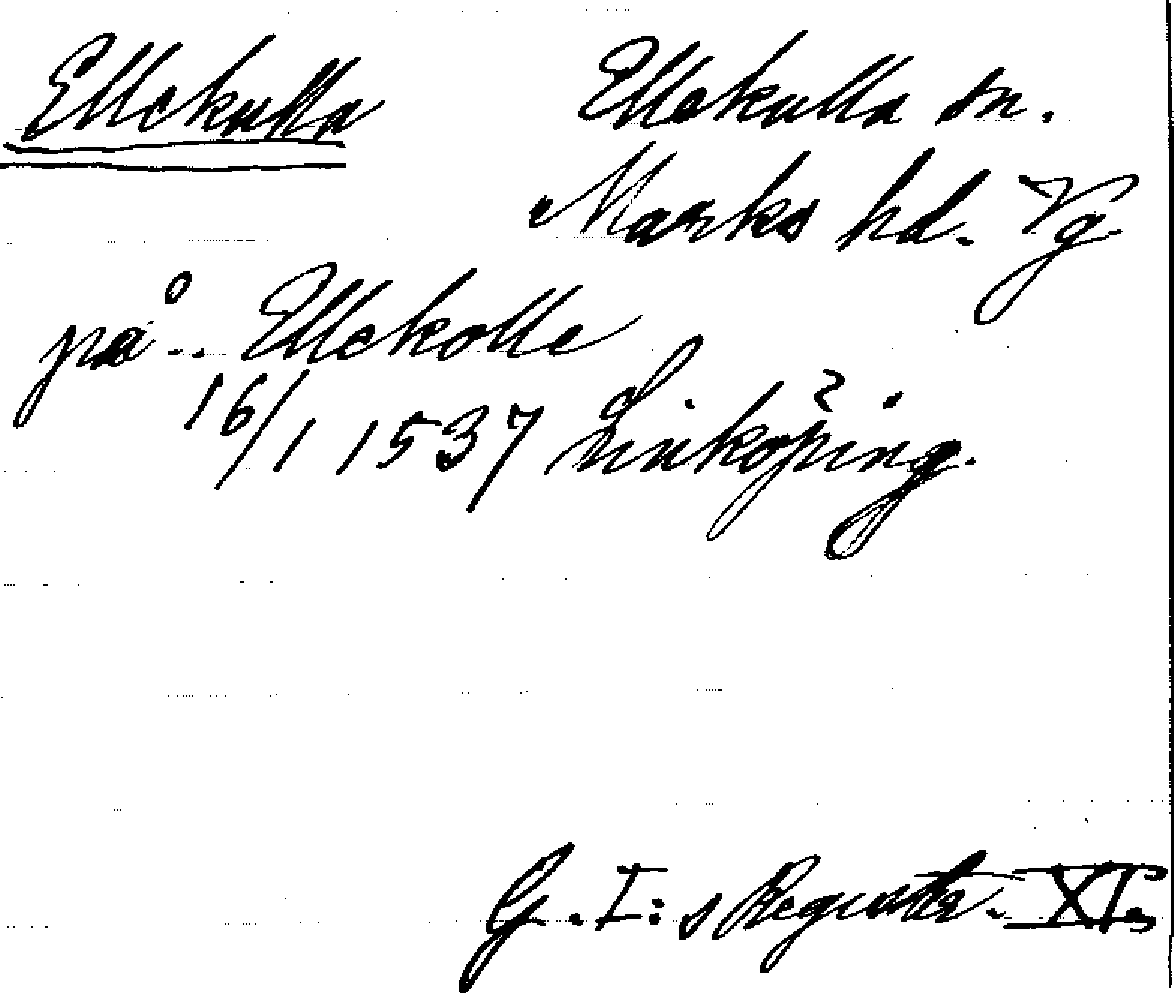 Ellekulla Ellekulla sn.
Marks hd. Vg
på .. Ellekolle
16/1 1537 Linköping.
G. I:s Registr. XI.